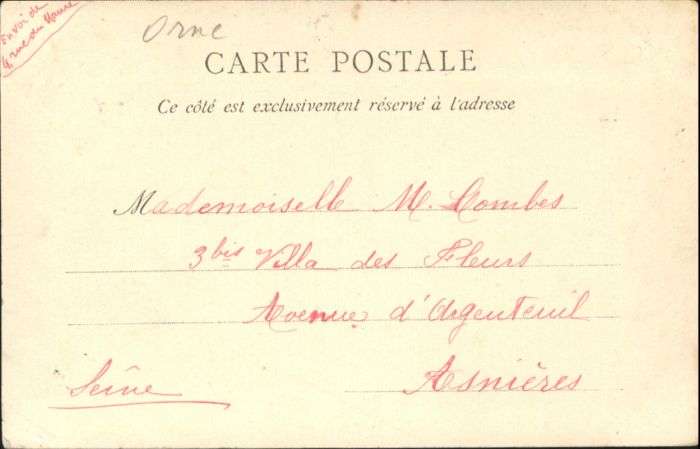 Envoi de
4 rue du Havre
Orne
CARTE POSTALE
Ce côté est exclusivement réservé à l'adresse
Mademoiselle M. Combes
3 bis Villa des Fleurs
Avenue d'Argenteuil
Asnières
Seine